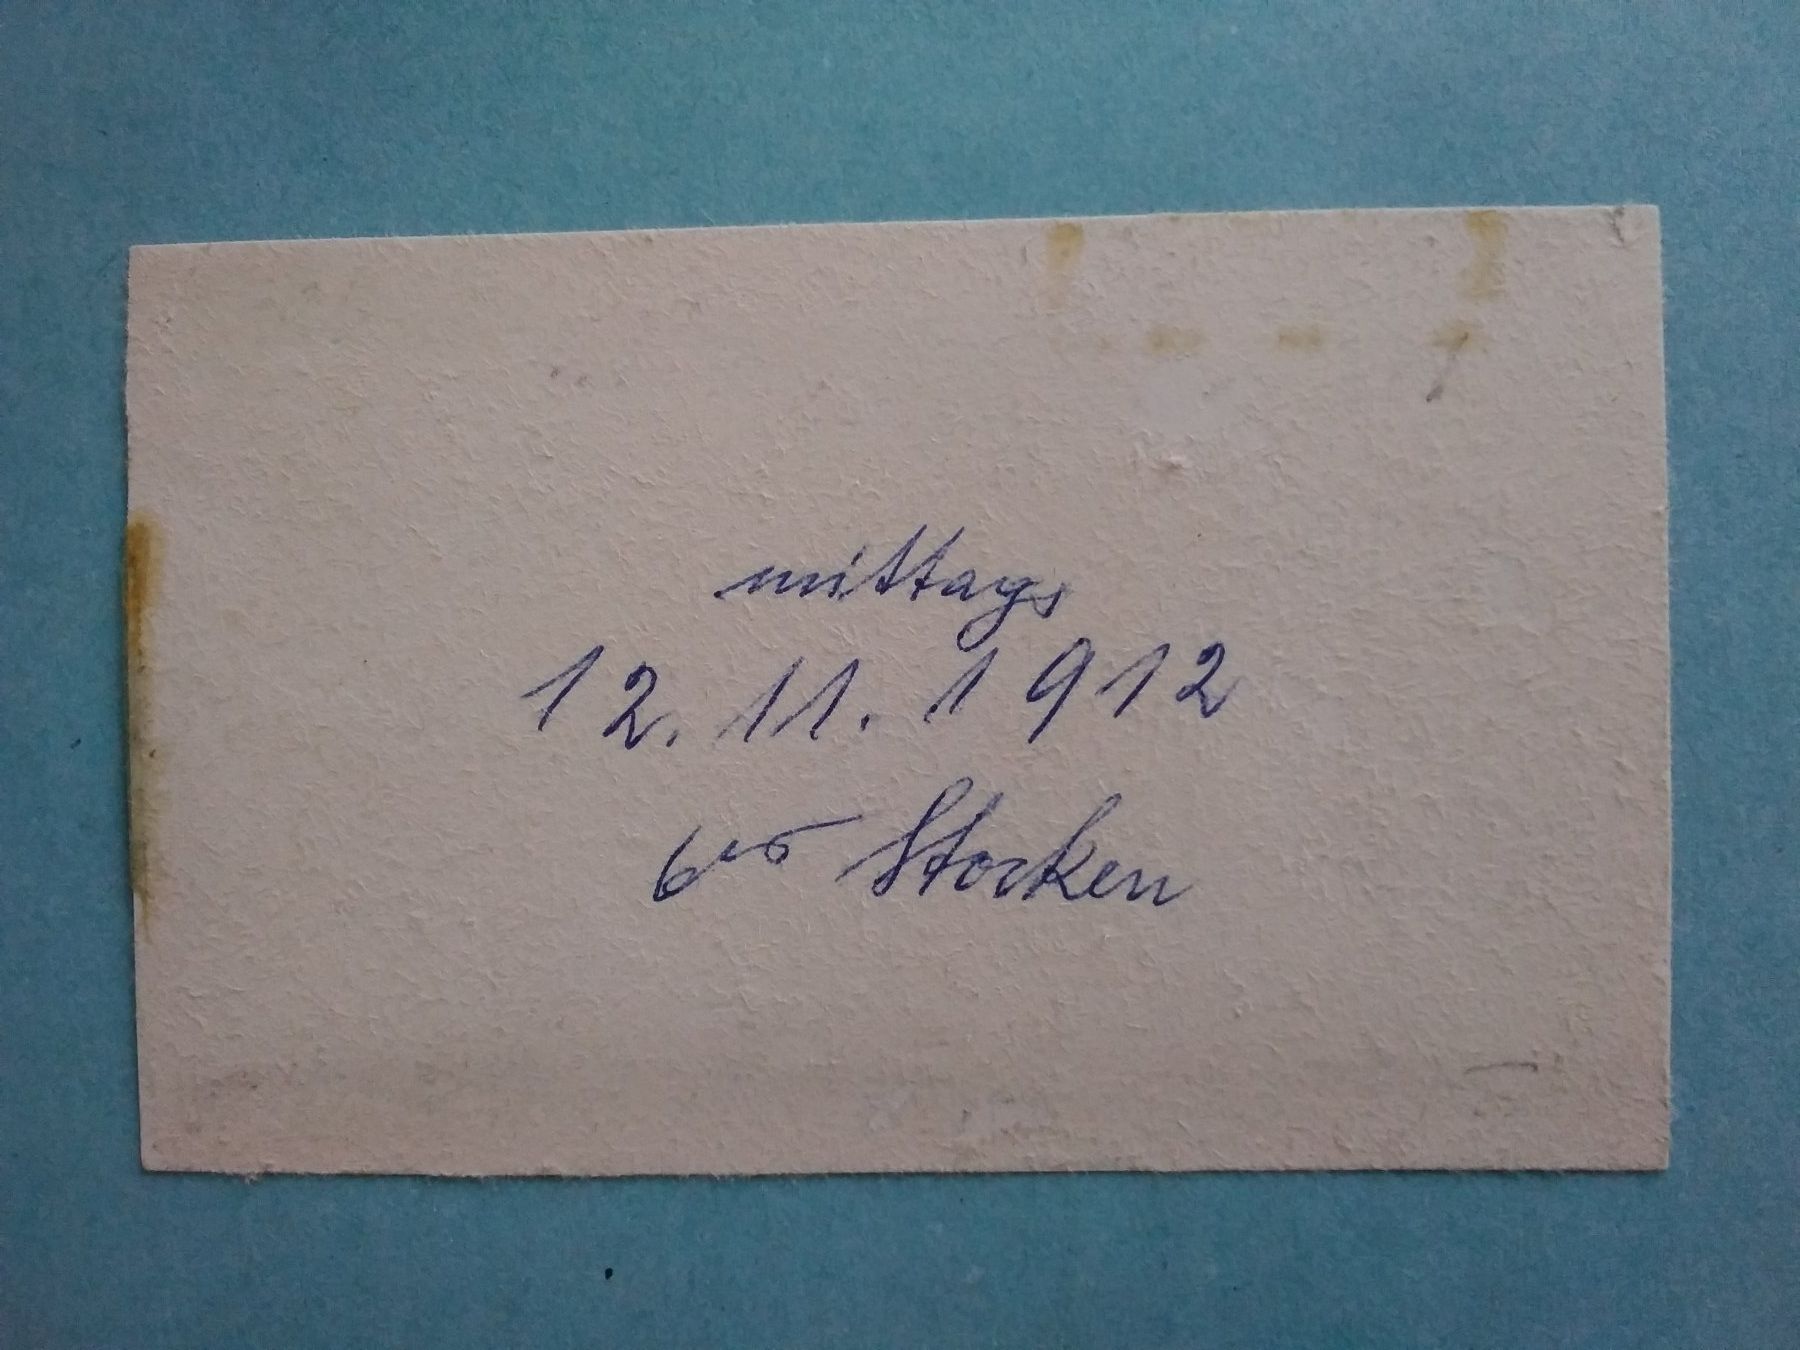 mittags
12. 11. 1912
Stocken